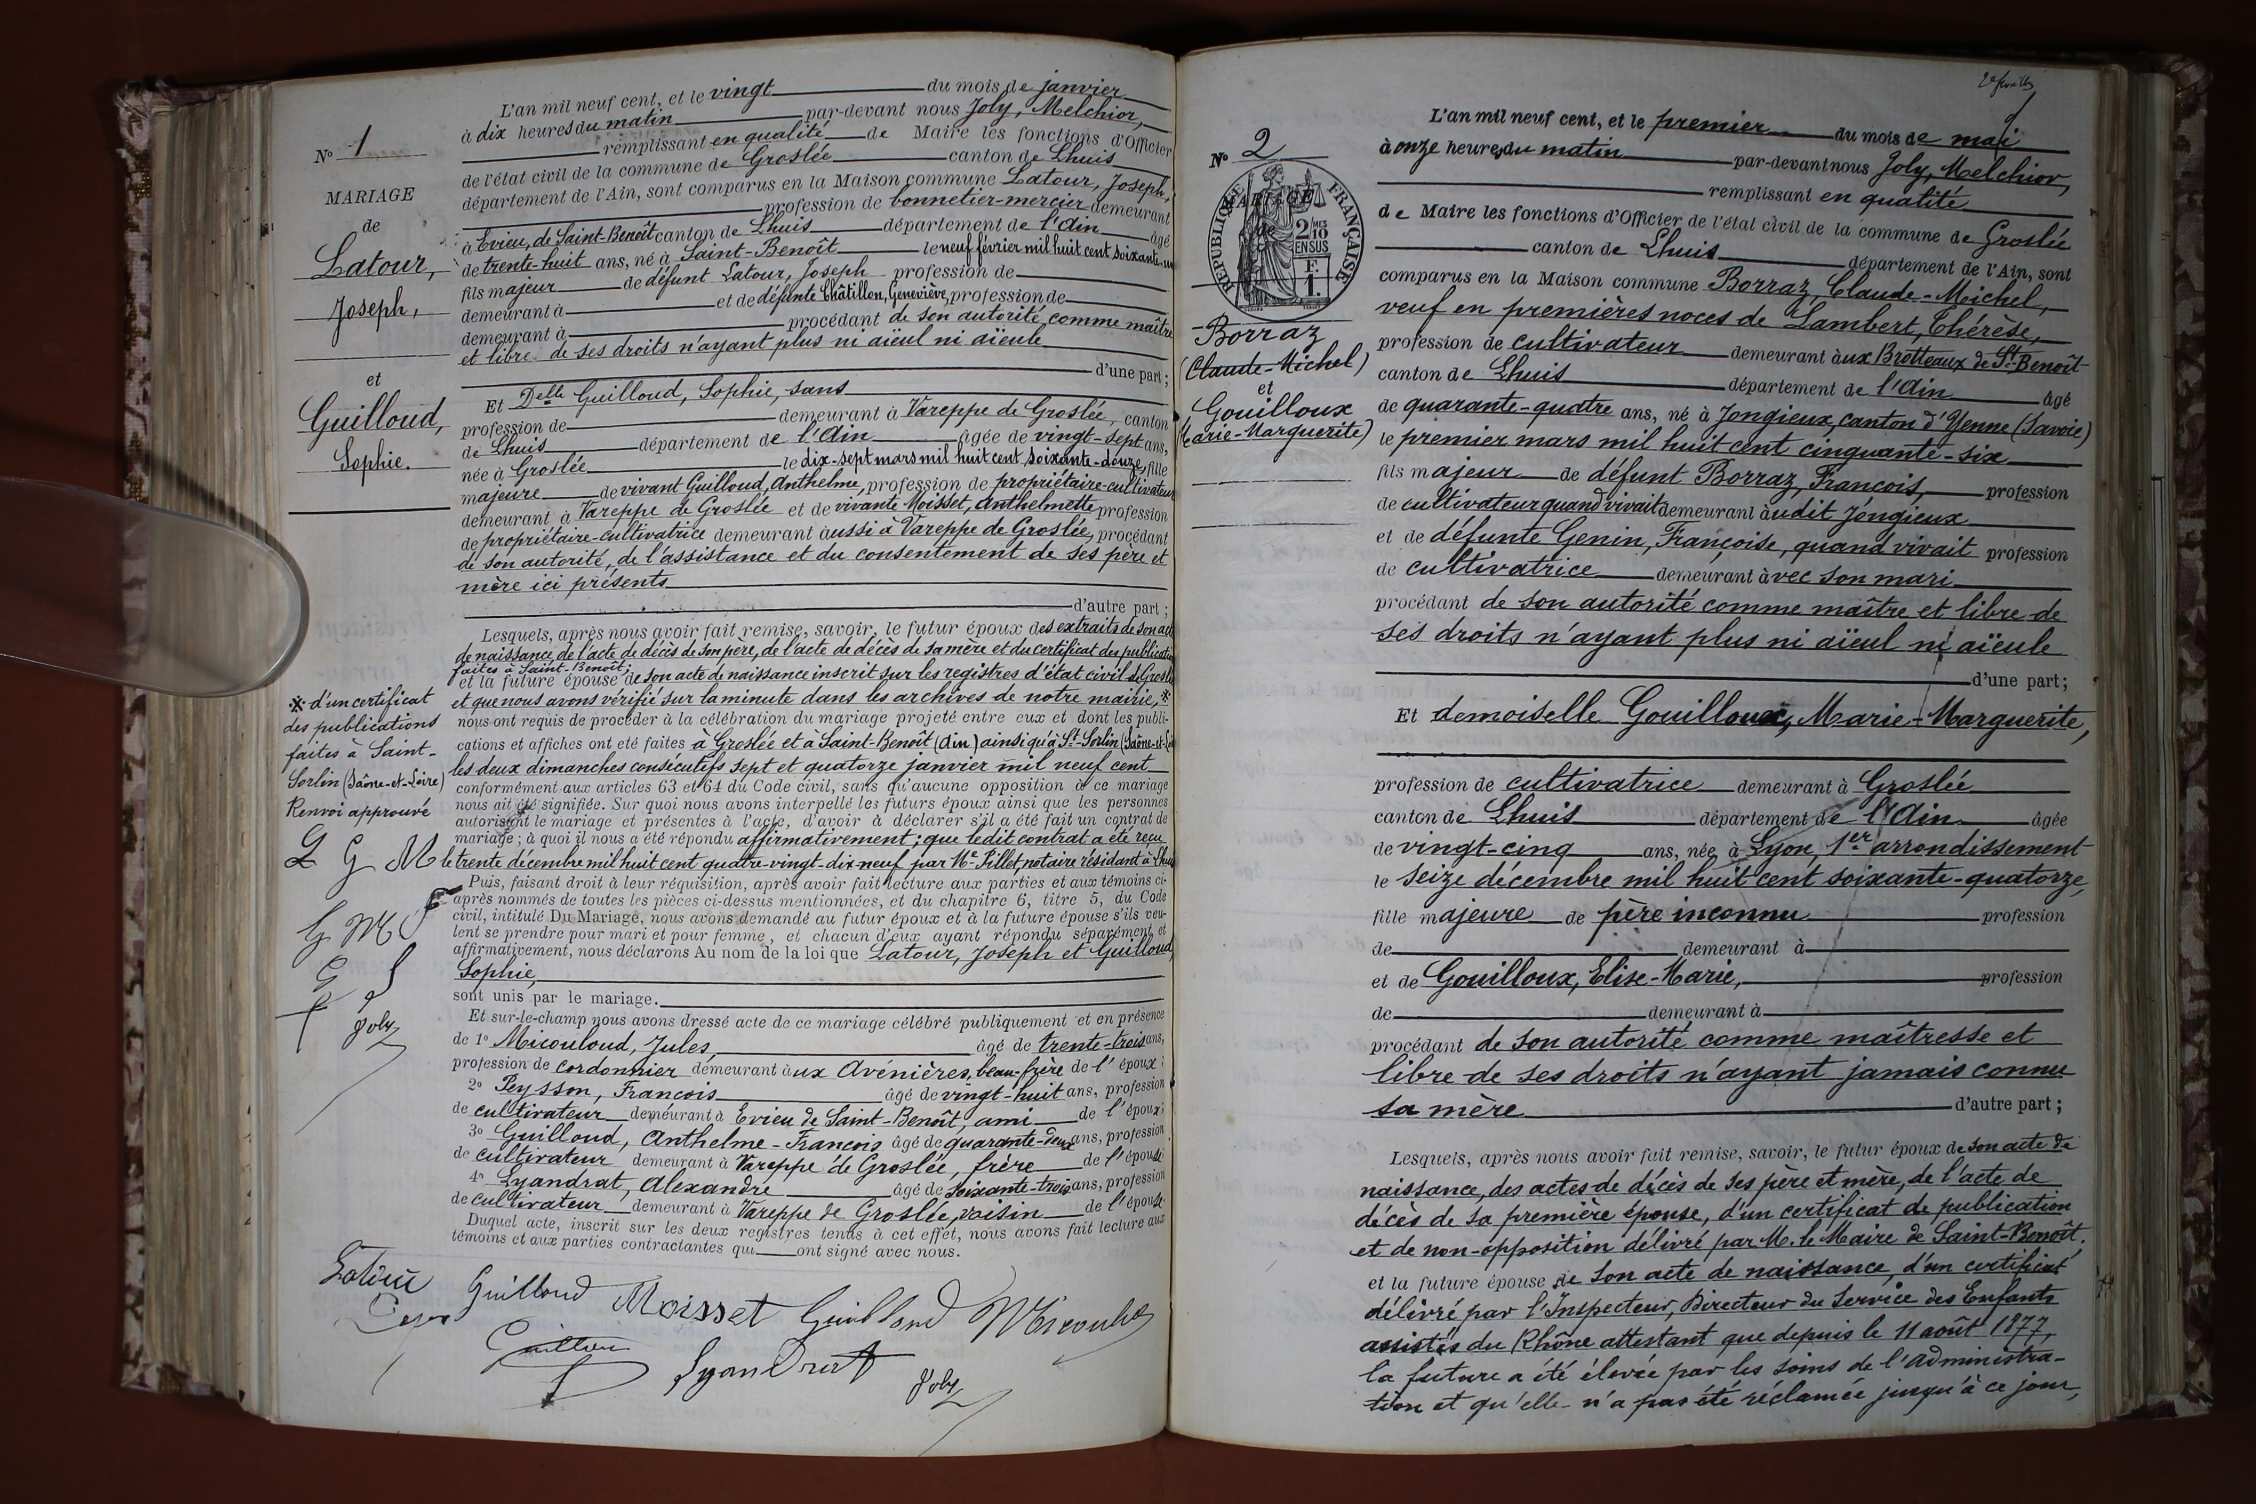 N° 1
MARIAGE
de
Latour,
Joseph,
et
Guilloud,
Sophie.
L'an mil neuf cent, et le vingt du mois de janvier
à dix heures du matin par-devant nous Joly, Melchior,
remplissant en qualité de Maire les fonctions d'Officier
de l'état civil de la commune de Groslée canton de Lhuis
département de l'Ain, sont comparus en la Maison commune Latour, Joseph,
profession de bonnetier-mercier demeurant
à Evieu, de Saint-Benoît canton de Lhuis département de l'Ain âgé
de trente-huit ans, né à Saint-Benoît le neuf février mil huit cent soixante-un
fils majeur de défunt Latour, Joseph profession de
demeurant à et de défunte Châtillon, Geneviève, profession de
demeurant à procédant de son autorité comme maître
et libre de ses droits n'ayant plus ni aïeul ni aïeule
d'une part;
Et Delle Guilloud, Sophie, sans
profession de demeurant à Vareppe de Groslée, canton
de Lhuis département de l'Ain âgée de vingt-sept ans,
née à Groslée le dix-sept mars mil huit cent soixante-douze, fille
majeure de vivant Guilloud, Anthelme, profession de propriétaire-cultivateur
demeurant à Vareppe de Groslée et de vivante Moisset, Anthelmette profession
de propriétaire-cultivatrice demeurant aussi à Vareppe de Groslée, procédant
de son autorité, de l'assistance et du consentement de ses père et
mère ici présents
d'autre part;
Lesquels, après nous avoir fait remise, savoir, le futur époux des extraits de son acte
de naissance, de l'acte de décès de son père, de l'acte de décès de sa mère et du certificat des publications
faites à Saint-Benoît;
et la future épouse de son acte de naissance inscrit sur les registres d'état civil de Groslée
et que nous avons vérifié sur la minute dans les archives de notre mairie, *
nous ont requis de procéder à la célébration du mariage projeté entre eux et dont les publi-
cations et affiches ont été faites à Groslée et à Saint-Benoît (Ain) ainsi qu'à St-Sorlin (Saône-et-Loire)
les deux dimanches consécutifs sept et quatorze janvier mil neuf cent
conformément aux articles 63 et 64 du Code civil, sans qu'aucune opposition à ce mariage
nous ait été signifiée. Sur quoi nous avons interpellé les futurs époux ainsi que les personnes
autorisant le mariage et présentes à l'acte, d'avoir à déclarer s'il a été fait un contrat de
mariage; à quoi il nous a été répondu affirmativement; que ledit contrat a été reçu
le trente décembre mil huit cent quatre-vingt-dix-neuf par Me Pillet, notaire résidant à Lhuis
Puis, faisant droit à leur réquisition, après avoir fait lecture aux parties et aux témoins ci-
après nommés de toutes les pièces ci-dessus mentionnées, et du chapitre 6, titre 5, du Code
civil, intitulé Du Mariage, nous avons demandé au futur époux et à la future épouse s'ils veu-
lent se prendre pour mari et pour femme, et chacun d'eux ayant répondu séparément et
affirmativement, nous déclarons Au nom de la loi que Latour, Joseph et Guilloud
Sophie,
sont unis par le mariage.
Et sur-le-champ nous avons dressé acte de ce mariage célébré publiquement et en présence
de 1° Micouloud, Jules, âgé de trente-trois ans,
profession de cordonnier demeurant aux Avenières, beau-frère de l'époux;
2° Peysson, François âgé de vingt-huit ans, profession
de cultivateur demeurant à Evieu de Saint-Benoît, ami de l'époux;
3° Guilloud, Anthelme-François âgé de quarante-deux ans, profession
de cultivateur demeurant à Vareppe de Groslée, frère de l'épouse
4° Lyandrat, Alexandre âgé de soixante-trois ans, profession
de cultivateur demeurant à Vareppe de Groslée, voisin de l'épouse
Duquel acte, inscrit sur les deux registres tenus à cet effet, nous avons fait lecture aux
témoins et aux parties contractantes qui ont signé avec nous.
* d'un certificat
des publications
faites à Saint-
Sorlin (Saône-et-Loire)
Renvoi approuvé
L G M
G M
G
Joly
Latour Guilloud Moisset Guilloud Micouloud
Lyandrat Joly
2e feuillet
N° 2
MARIAGE
de
REPUBLIQUE FRANÇAISE
2/10 MES
EN SUS
F.
1.
Borraz
(Claude-Michel)
et
Gouilloux
(Marie-Marguerite)
L'an mil neuf cent, et le premier du mois de mai
à onze heures du matin par-devant nous Joly, Melchior,
remplissant en qualité
de Maire les fonctions d'Officier de l'état civil de la commune de Groslée
canton de Lhuis département de l'Ain, sont
comparus en la Maison commune Borraz, Claude-Michel,
veuf en premières noces de Lambert, Thérèse,
profession de cultivateur demeurant aux Brotteaux de St-Benoît
canton de Lhuis département de l'Ain âgé
de quarante-quatre ans, né à Jongieux, canton d'Yenne (Savoie)
le premier mars mil huit cent cinquante-six
fils majeur de défunt Borraz, François, profession
de cultivateur quand vivait demeurant audit Jongieux
et de défunte Genin, Françoise, quand vivait profession
de cultivatrice demeurant avec son mari
procédant de son autorité comme maître et libre de
ses droits n'ayant plus ni aïeul ni aïeule
d'une part;
Et demoiselle Gouilloux, Marie-Marguerite,
profession de cultivatrice demeurant à Groslée
canton de Lhuis département de l'Ain âgée
de vingt-cinq ans, née à Lyon, 1er arrondissement
le seize décembre mil huit cent soixante-quatorze,
fille majeure de père inconnu profession
de demeurant à
et de Gouilloux, Elise-Marie, profession
de demeurant à
procédant de son autorité comme maîtresse et
libre de ses droits n'ayant jamais connu
sa mère d'autre part;
Lesquels, après nous avoir fait remise, savoir, le futur époux de son acte de
naissance, des actes de décès de ses père et mère, de l'acte de
décès de sa première épouse, d'un certificat de publication
et de non-opposition délivré par M. le Maire de Saint-Benoît,
et la future épouse de son acte de naissance, d'un certificat
délivré par l'Inspecteur, Directeur du Service des Enfants
assistés du Rhône attestant que depuis le 11 août 1877,
la future a été élevée par les soins de l'administra-
tion et qu'elle n'a pas été réclamée jusqu'à ce jour,